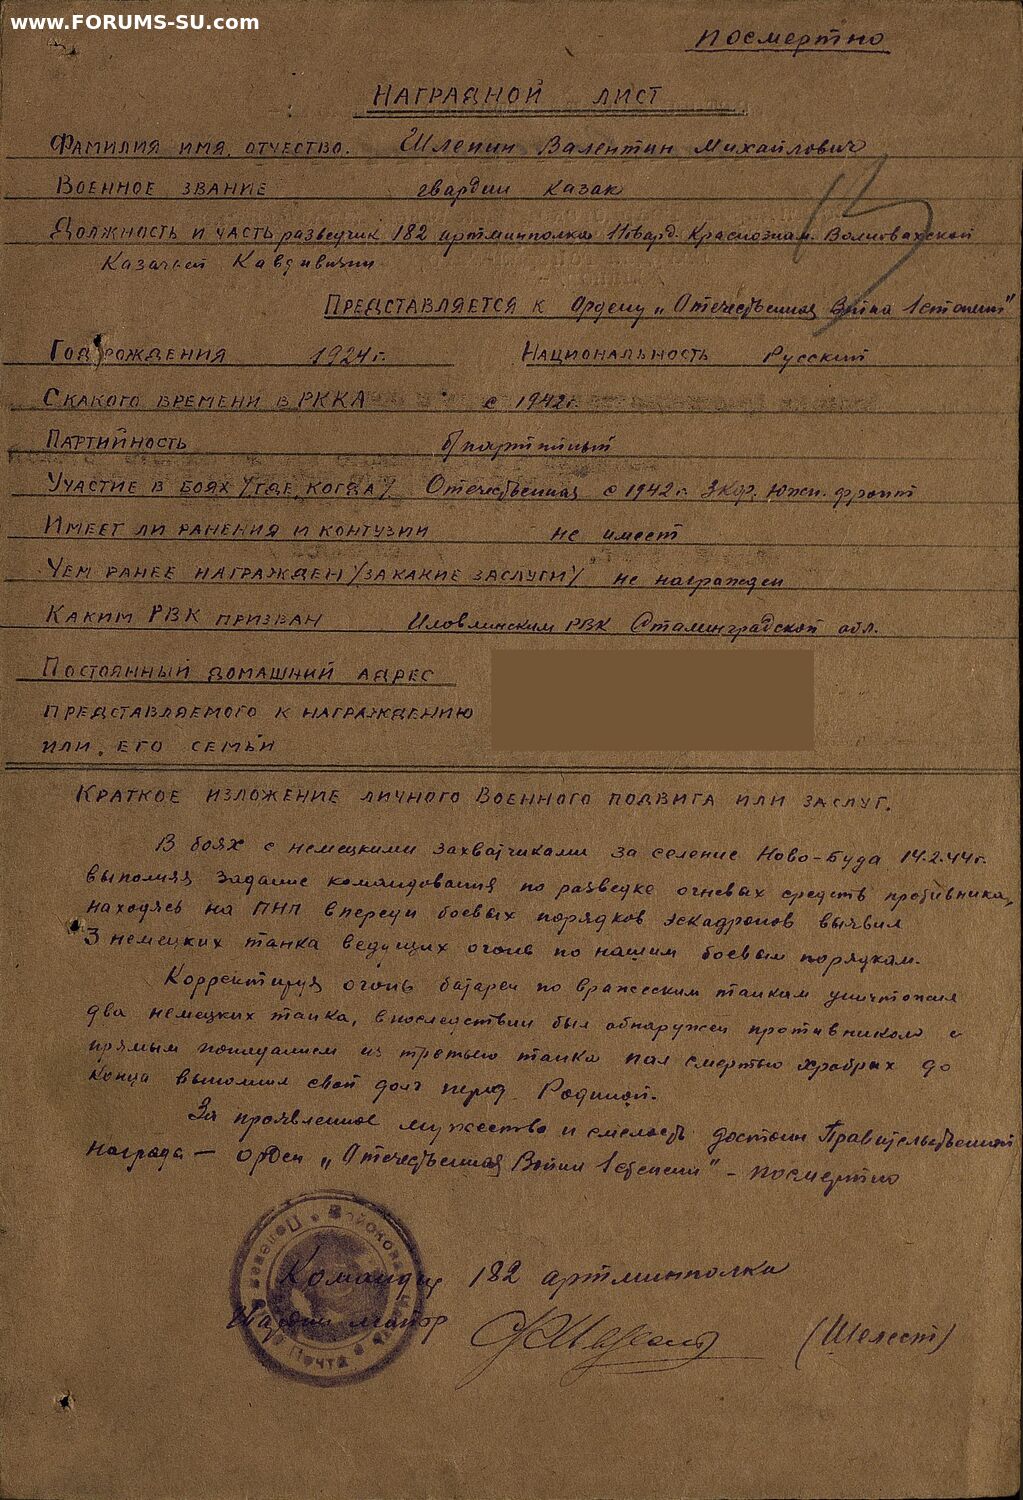 www.FORUMS-SU.com
посмертно
НАГРАДНОЙ ЛИСТ
ФАМИЛИЯ ИМЯ. ОТЧЕСТВО. Шлепин Валентин Михайлович
ВОЕННОЕ ЗВАНИЕ гвардии казак
ДОЛЖНОСТЬ И ЧАСТЬ разведчик 182 артминполка 11 гвард. Краснознам. Волновахской
Казачьей Кавдивизии
ПРЕДСТАВЛЯЕТСЯ К Ордену „Отечественная Война 1 степени"
ГОД РОЖДЕНИЯ 1924 г. НАЦИОНАЛЬНОСТЬ Русский
С КАКОГО ВРЕМЕНИ В РККА с 1942 г.
ПАРТИЙНОСТЬ б/партийный
УЧАСТИЕ В БОЯХ /ГДЕ, КОГДА/ Отечественная с 1942 г. Южн. фронт
ИМЕЕТ ЛИ РАНЕНИЯ И КОНТУЗИИ не имеет
ЧЕМ РАНЕЕ НАГРАЖДЕН /ЗА КАКИЕ ЗАСЛУГИ/ не награжден
КАКИМ РВК ПРИЗВАН Иловлинским РВК Сталинградской обл.
ПОСТОЯННЫЙ ДОМАШНИЙ АДРЕС
ПРЕДСТАВЛЯЕМОГО К НАГРАЖДЕНИЮ
ИЛИ. ЕГО СЕМЬИ
КРАТКОЕ ИЗЛОЖЕНИЕ ЛИЧНОГО ВОЕННОГО ПОДВИГА ИЛИ ЗАСЛУГ.
В боях с немецкими захватчиками за селение Ново-Буда 14.2.44 г.
выполняя задание командования по разведке огневых средств противника,
находясь на ПНП впереди боевых порядков эскадронов выявил
3 немецких танка ведущих огонь по нашим боевым порядкам.
Корректируя огонь батареи по вражеским танкам уничтожил
два немецких танка, впоследствии был обнаружен противником и
прямым попаданием из третьего танка пал смертью храбрых до
конца выполнил свой долг перед Родиной.
За проявленное мужество и смелость достоин Правительственной
награды — орден „Отечественная Война 1 степени" - посмертно
Командир 182 артминполка
Гвардии майор (Шелест)
Полевая Почта